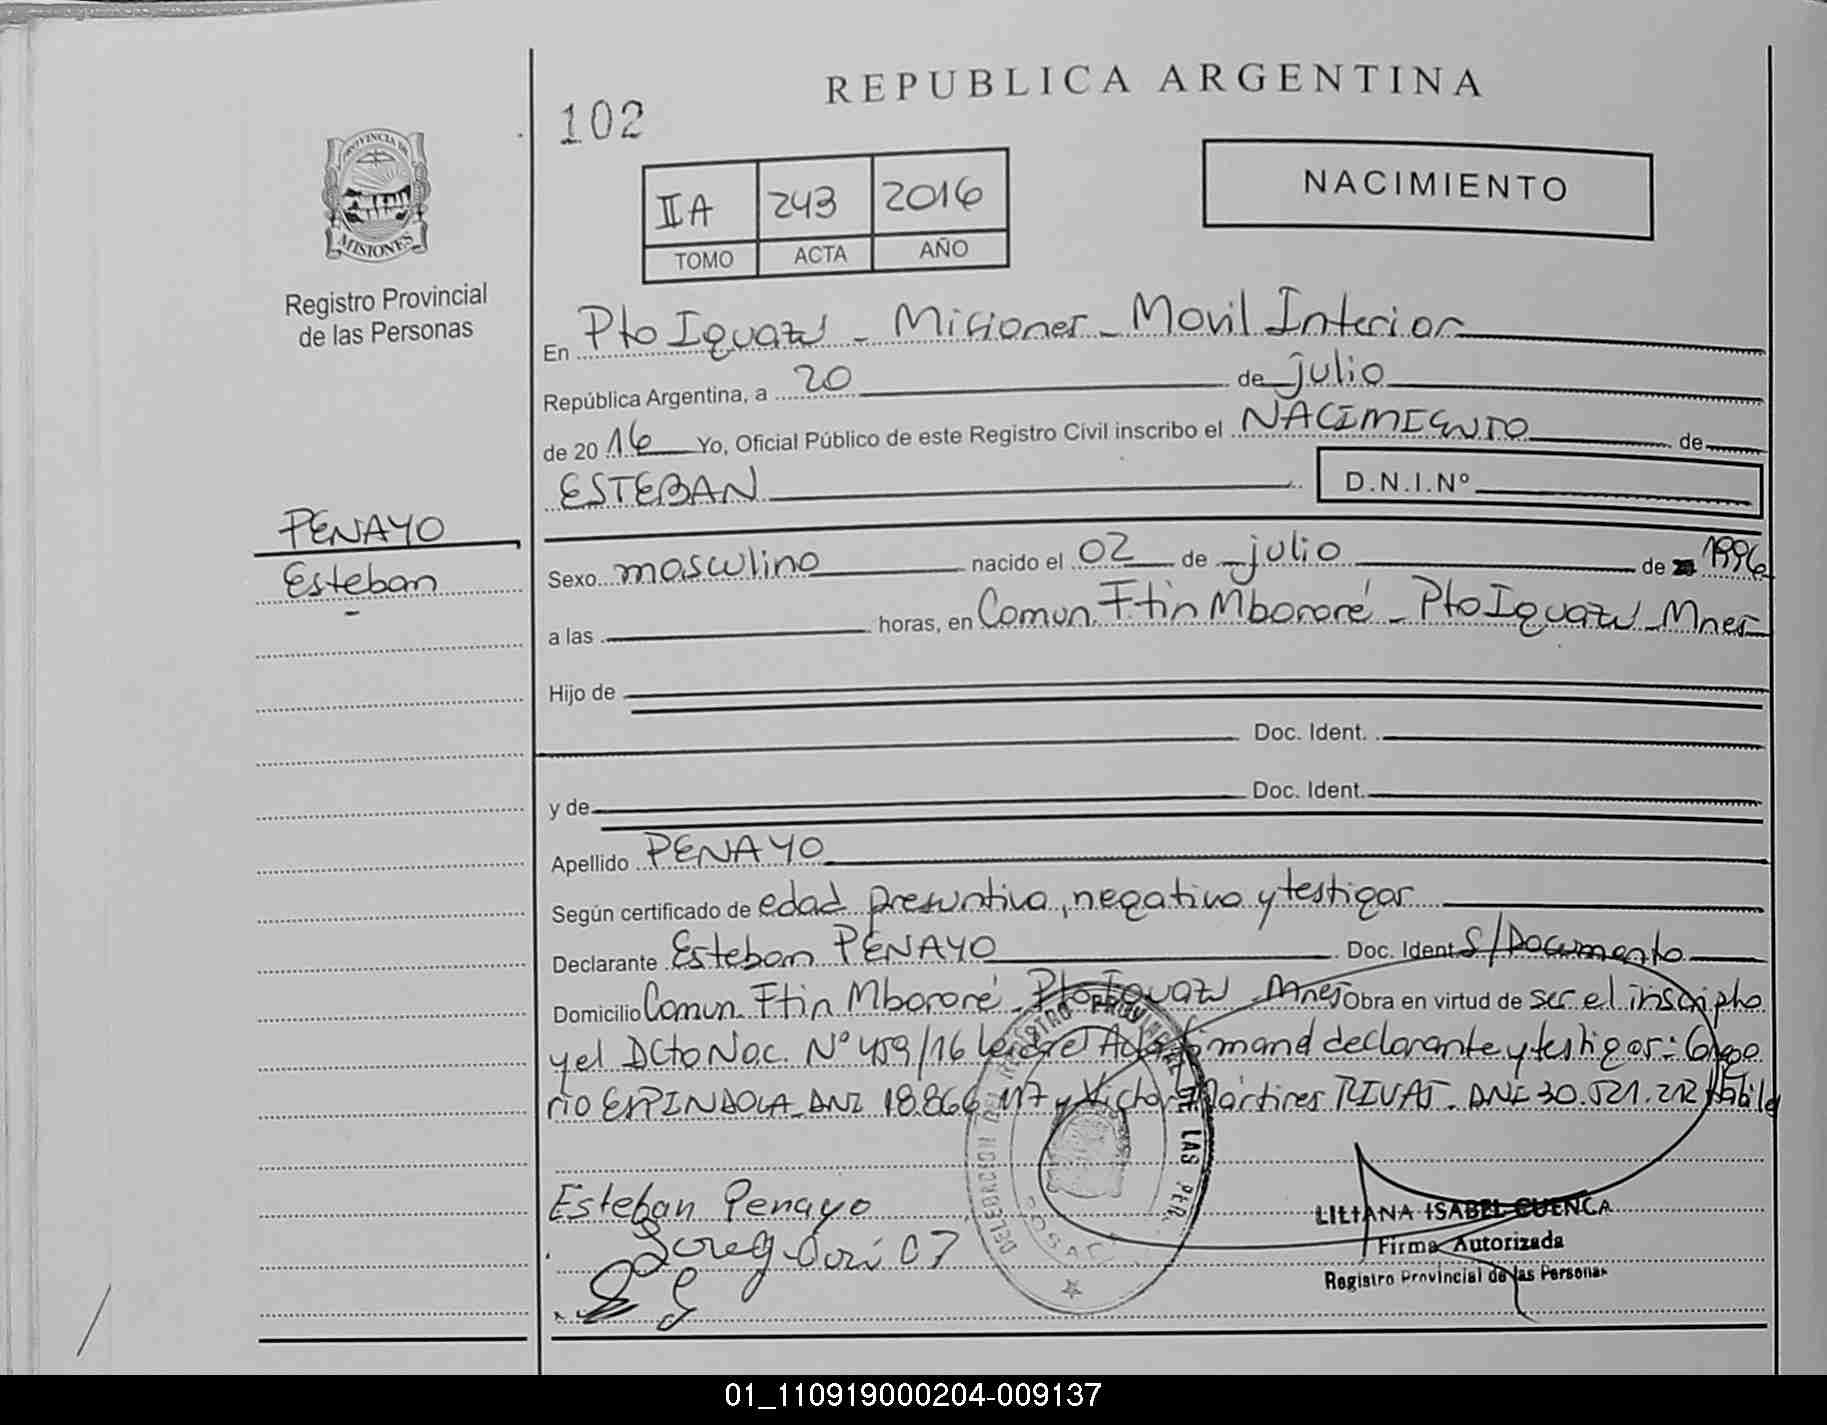 REPUBLICA ARGENTINA
102
NACIMIENTO
IIA 243 2016
TOMO ACTA AÑO
PROVINCIA DE
MISIONES
Registro Provincial
de las Personas
En Pto Iguazu - Misiones - Movil Interior
República Argentina, a 20 de julio
de 2016 Yo, Oficial Público de este Registro Civil inscribo el NACIMIENTO de
ESTEBAN D.N.I.Nº
PENAYO
Esteban
Sexo masculino nacido el 02 de julio de 1996
a las horas, en Comun. Ftin Mbororé - Pto Iguazu - Mnes
Hijo de
Doc. Ident.
y de Doc. Ident.
Apellido PENAYO
Según certificado de edad presuntiva, negativo y testigos
Declarante Esteban PENAYO Doc. Ident S/Documento
Domicilio Comun. Ftin Mbororé - Pto Iguazu - Mnes Obra en virtud de ser el inscripto
y el Dcto Nac. Nº 459/16 Acta declarante y testigos: Grego
rio ESPINDOLA DNI 18.866.117 y Victor Martires RIVAS. DNI 30.521.212
Esteban Penayo
LILIANA ISABEL CUENCA
Firma Autorizada
Registro Provincial de las Personas
DELEGACION REGISTRO PROVINCIAL LAS PER.
POSADAS
01_110919000204-009137